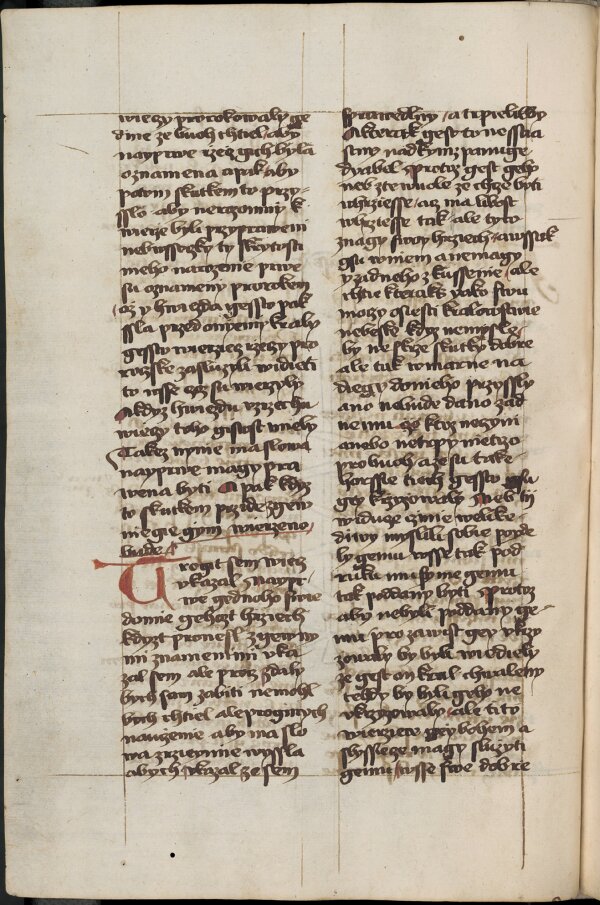 wieczy prorokowaly ge
dine ze buoh chtiel aby
nayprwe rzecz gich byla
oznamena a pak aby
potom skutkem to przy
sslo aby nerozomni k
wierze byli przypraweni
neb wssoczky ty skrytosti
meho narozenie prwe
su oznameny prorokem
az y hwiezda gessto pak
ssla przed onyemi kraly
gessto wierziecz rzeczy pro
roczske zasluzyli widieti
to wsse coz su wierzyly
A kdyz hwiezdu vzrzechu
wieczy toho gistost mely
Takez nynie ma slowa
nayprwe magy pra
wena byti A pak kdyz
to skutkem przide zgew
nie gie gym wierzeno
bude
Trogit sem wiecz
vkazal Naypr
we gednoho swie
domie gehozt hrziech
kdyzt pronesl zgewny
mi znamenimi vka
zal sem ale procz zdaly
bych sam zabiti nemohl
bych chtiel ale pro ginych
nauzenie aby ma slo
wa zrziewnie wyssla
abych vkazal ze sem
sprawedlny a trpieliwy
A kterak gest to ne sstia
stny nad kymz panuge
dyabel Protoz gest gehy
neb zte wuole ze chze byti
whrziesse az ma libost
whrziesse tak ale tyto
znagy swoy hrziech a wssak
gsu winiem a nemagy
y zadneho zkussenie ale
chtie kterakz yako swu
moczy osiesti kralowstwie
nebeske kdyz nemysle
by ne skrze skutky dobre
ale tak tomarne na
diegy do nieho przyssly
ano nebude dano zad
nemu ze ktoz neczyni
anebo netrpy nietczo
pro buoh a ze su take
horssie tiech gessto su
gey krzyzowaly Neb ti
widucze czinie welike
diwy myslili sobie poyde
ly gemu wsse tak pod
ruku musyme gemu
tak poddany byti Protoz
aby nebyli poddany ge
mu pro zawist gey vkrzy
zowaly by byli wiediely
ze gest on kral chwaleny
tehdy by byli geho ne
vkrzyzowaly ale tito
wierziecze gey bohem a
slyssiecze magy sluzyti
gemu wsse swe dobre